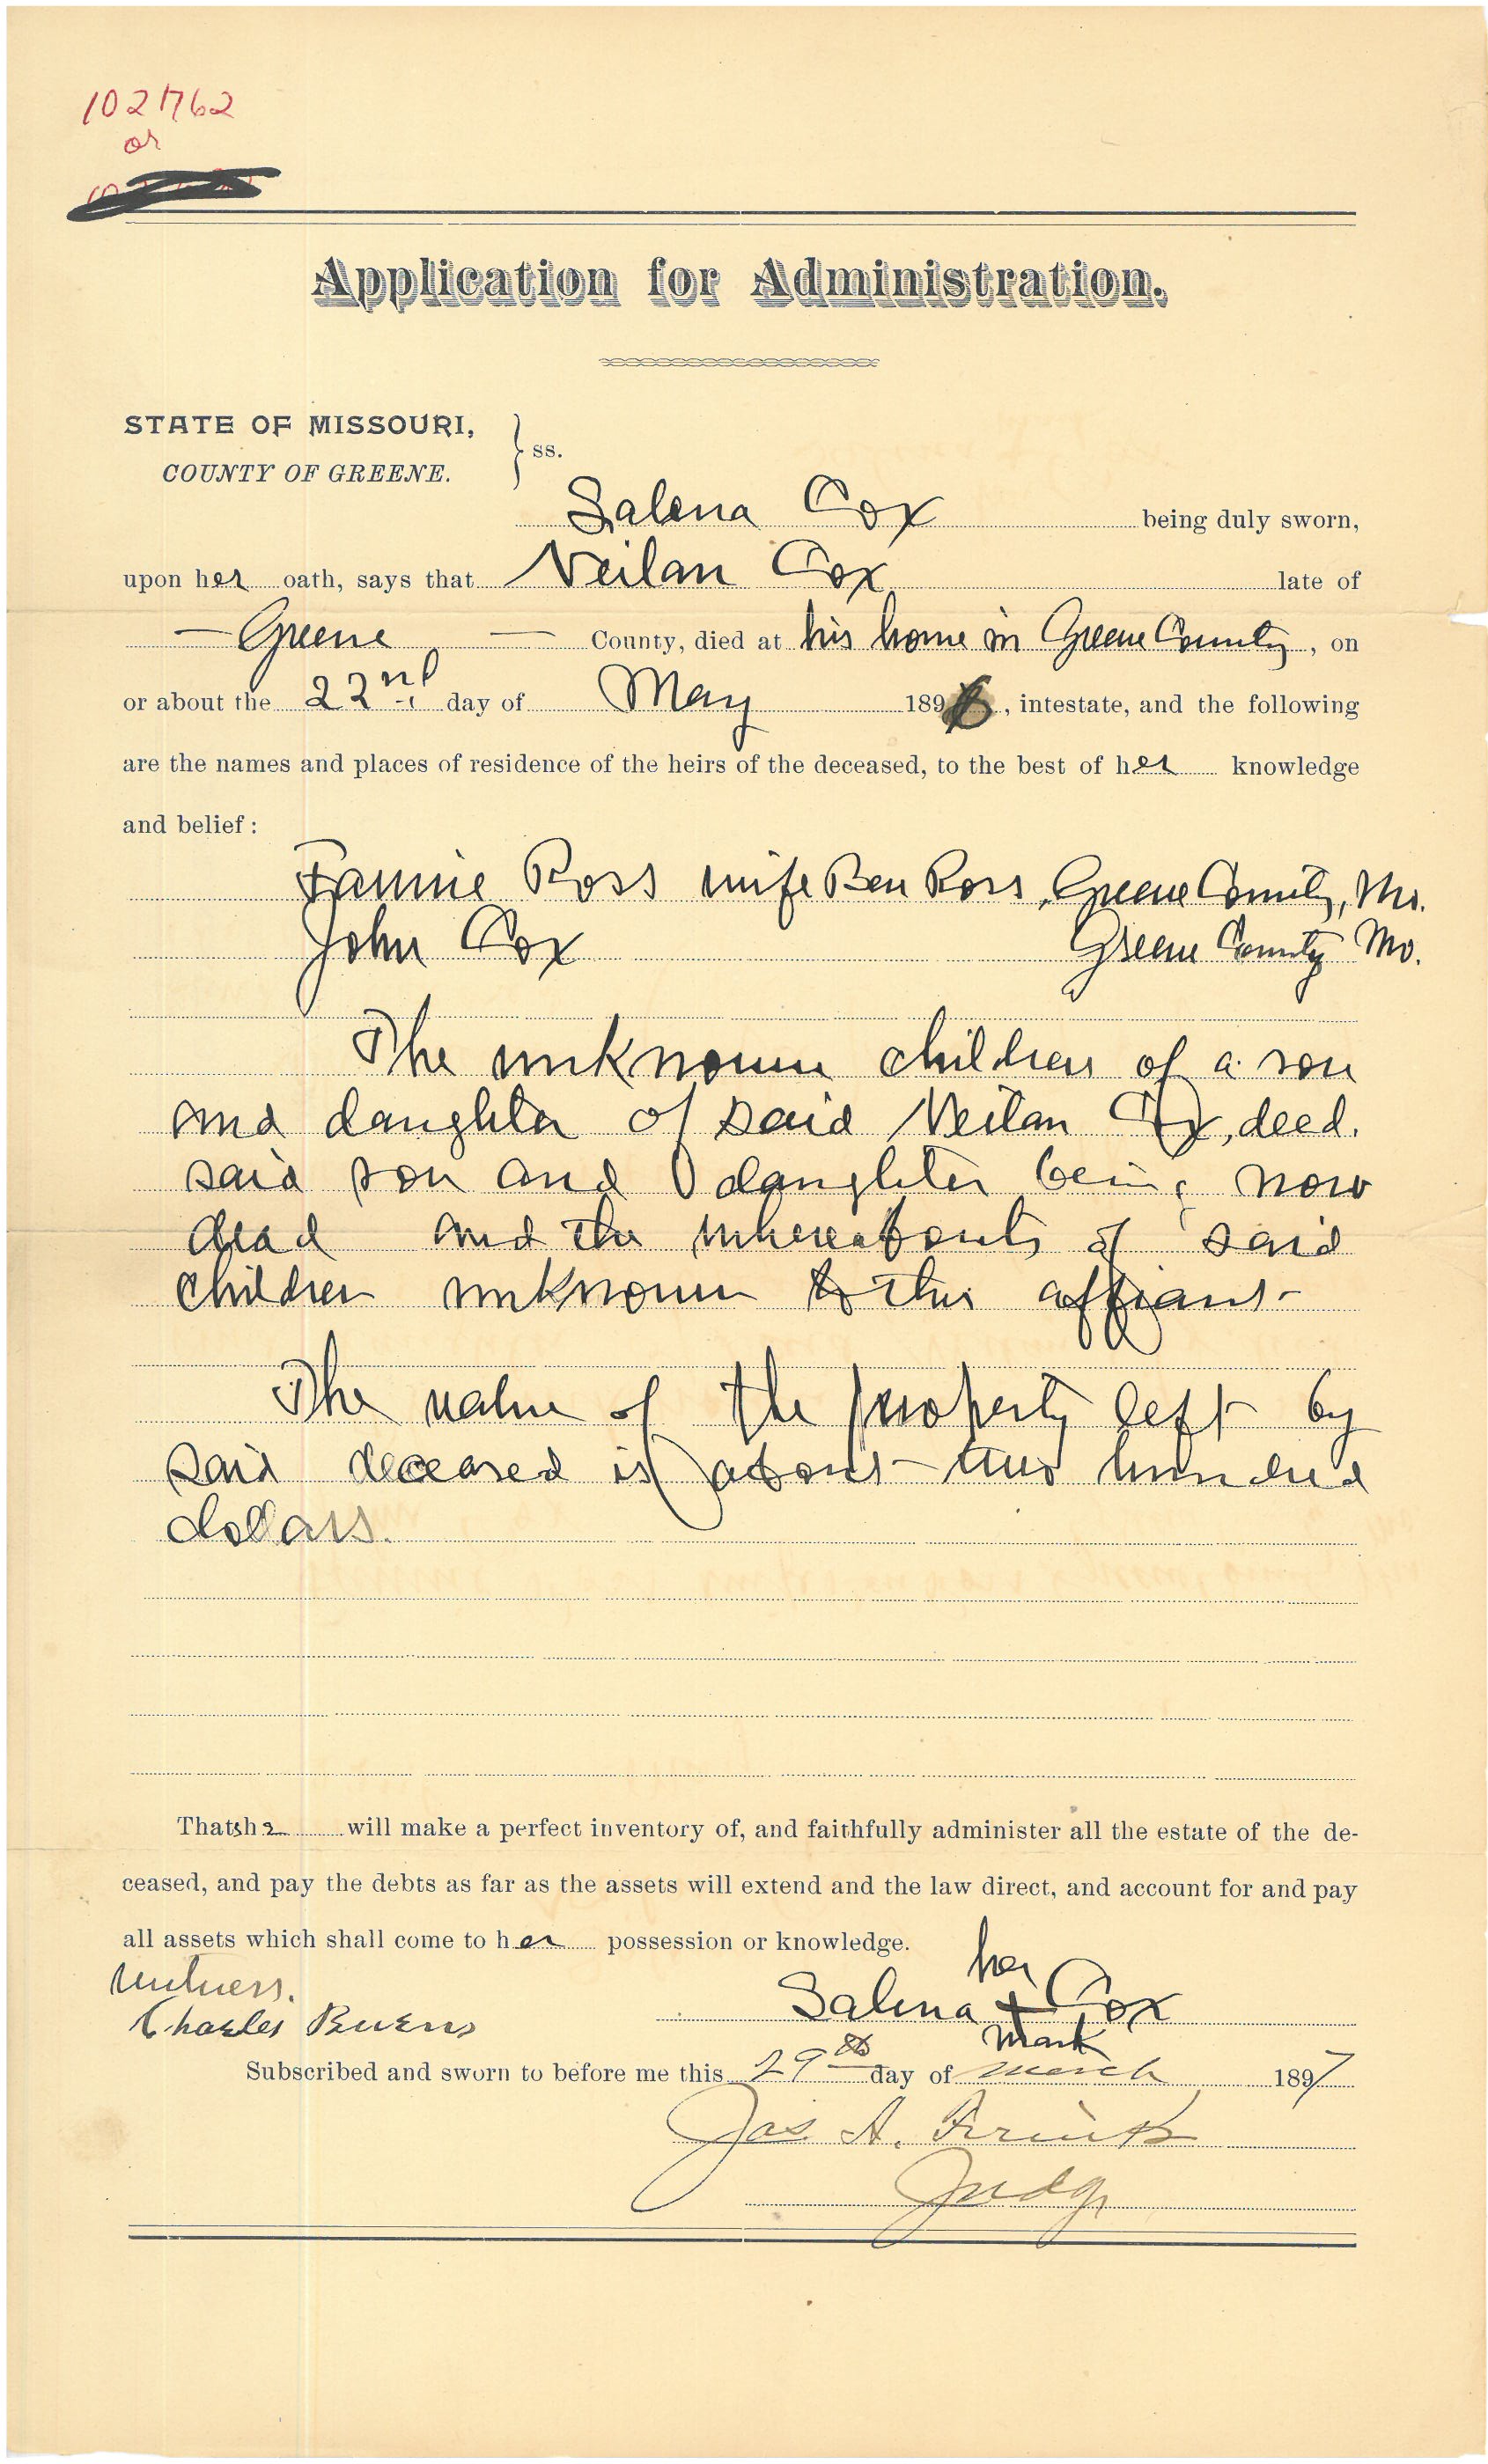 102762
or
Application for Administration.
STATE OF MISSOURI,
COUNTY OF GREENE. } ss.
Salena Cox being duly sworn,
upon her oath, says that Neilan Cox late of
— Greene — County, died at his home in Greene County, on
or about the 22nd day of May 1896, intestate, and the following
are the names and places of residence of the heirs of the deceased, to the best of her knowledge
and belief:
Fannie Ross wife Ben Ross, Greene County, Mo.
John Cox Greene County Mo.
The unknown children of a son
and daughter of said Neilan Cox, deed.
said son and daughter being now
dead and the whereabouts of said
children unknown to this affiant-
The value of the property left by
said deceased is about two hundred
dollars.
That she will make a perfect inventory of, and faithfully administer all the estate of the de-
ceased, and pay the debts as far as the assets will extend and the law direct, and account for and pay
all assets which shall come to her possession or knowledge.
Witness. her
Charles Buens Salena + Cox
mark
Subscribed and sworn to before me this 29th day of march 1897
Jas. A. Frink
Judge